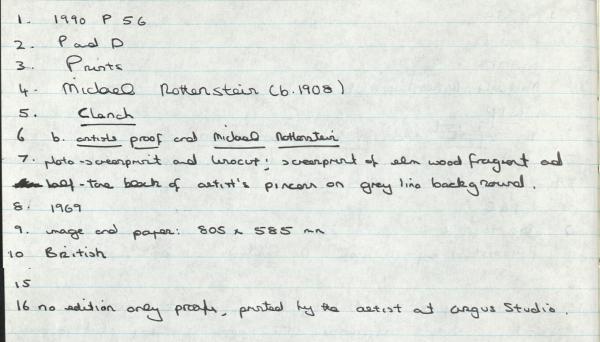 1. 1990 P 56
2. P and D
3. Prints
4. Michael Rothenstein (b. 1908)
5. Clanch
6 b. artists proof and Michael Rothenstein
7. photo-screenprint and linocut; screenprint of elm wood fragment and
half-tone back of artist's on grey lino background.
8. 1969
9. image and paper: 805 x 585 mm
10 British
15
16 no edition only proofs, printed by the artist at Argus Studio.